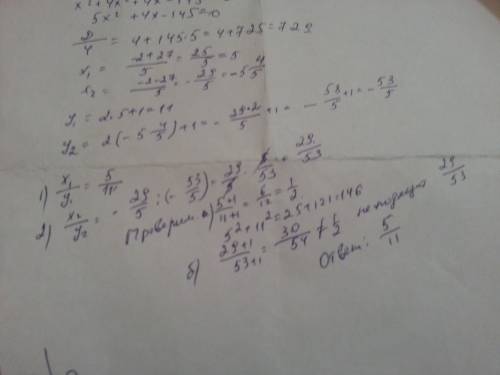 x² + 4x² + 4x - 145
5x² + 4x - 145 = 0
D/4 = 4 + 145·5 = 4 + 725 = 729
x₁ = (-2+27)/5 = 25/5 = 5
x₂ = (-2-27)/5 = -29/5 = -5 4/5
y₁ = 2·5+1 = 11
y₂ = 2(-5 4/5)+1 = -(29·2)/5 + 1 = -58/5 + 1 = -53/5
1) x₁/y₁ = 5/11
2) x₂/y₂ = -29/5 : (-53/5) = 29/5 · 5/53 = 29/53
Проверим: а) (5+1)/(11+1) = 6/12 = 1/2
5² + 11² = 25 + 121 = 146
б) (29+1)/(53+1) = 30/54 ≠ 1/2 не подходит 29/53
Ответ: 5/11